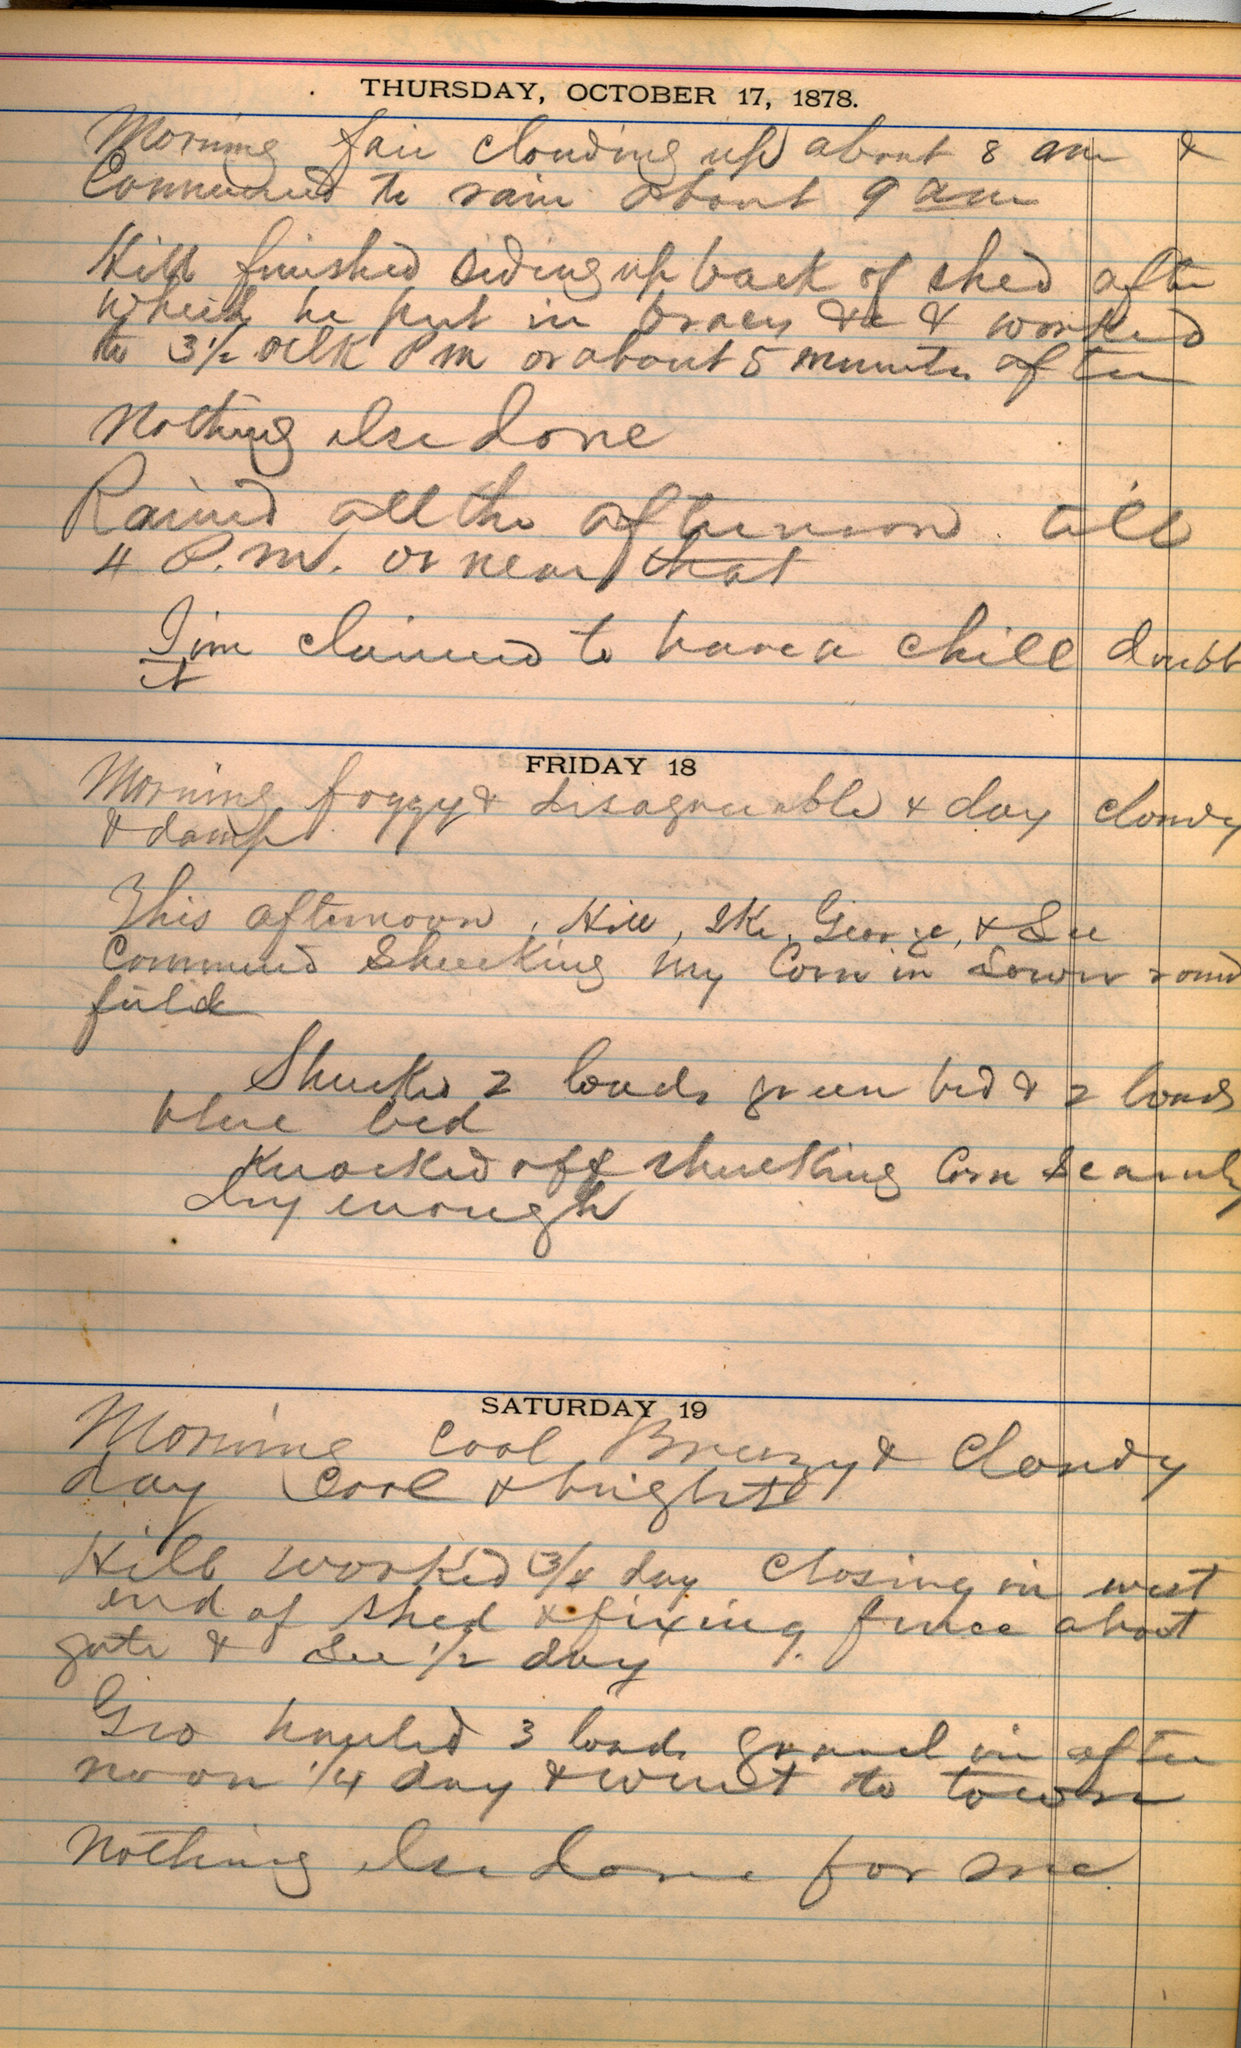 THURSDAY, OCTOBER 17, 1878.
Morning fair clouding up about 8 am &
Commenced to rain about 9 am
Hill finished siding up back of shed after
which he put in braces &c & worked
to 3½ oclk P m or about 5 minutes after
Nothing else done
Rained all the afternoon till
4 P.M. or near that
Jim claimed to have a chill doubt
it
FRIDAY 18
Morning foggy & disagreeable & day cloudy
& damp
This afternoon, Hill, Ike, George, & Lee
Commenced Shucking my Corn in down round
field
Shucked 2 loads green bed & 2 loads
blue bed
Knocked off shucking Corn scarcely
dry enough
SATURDAY 19
Morning Cool Breezy & Cloudy
day Cool & bright
Hill worked 3/4 day Closing in west
end of shed & fixing fence about
gate & Lee 1/2 day
Geo hauled 3 loads gravel in after
noon 1/4 day & went to town
Nothing else done for me